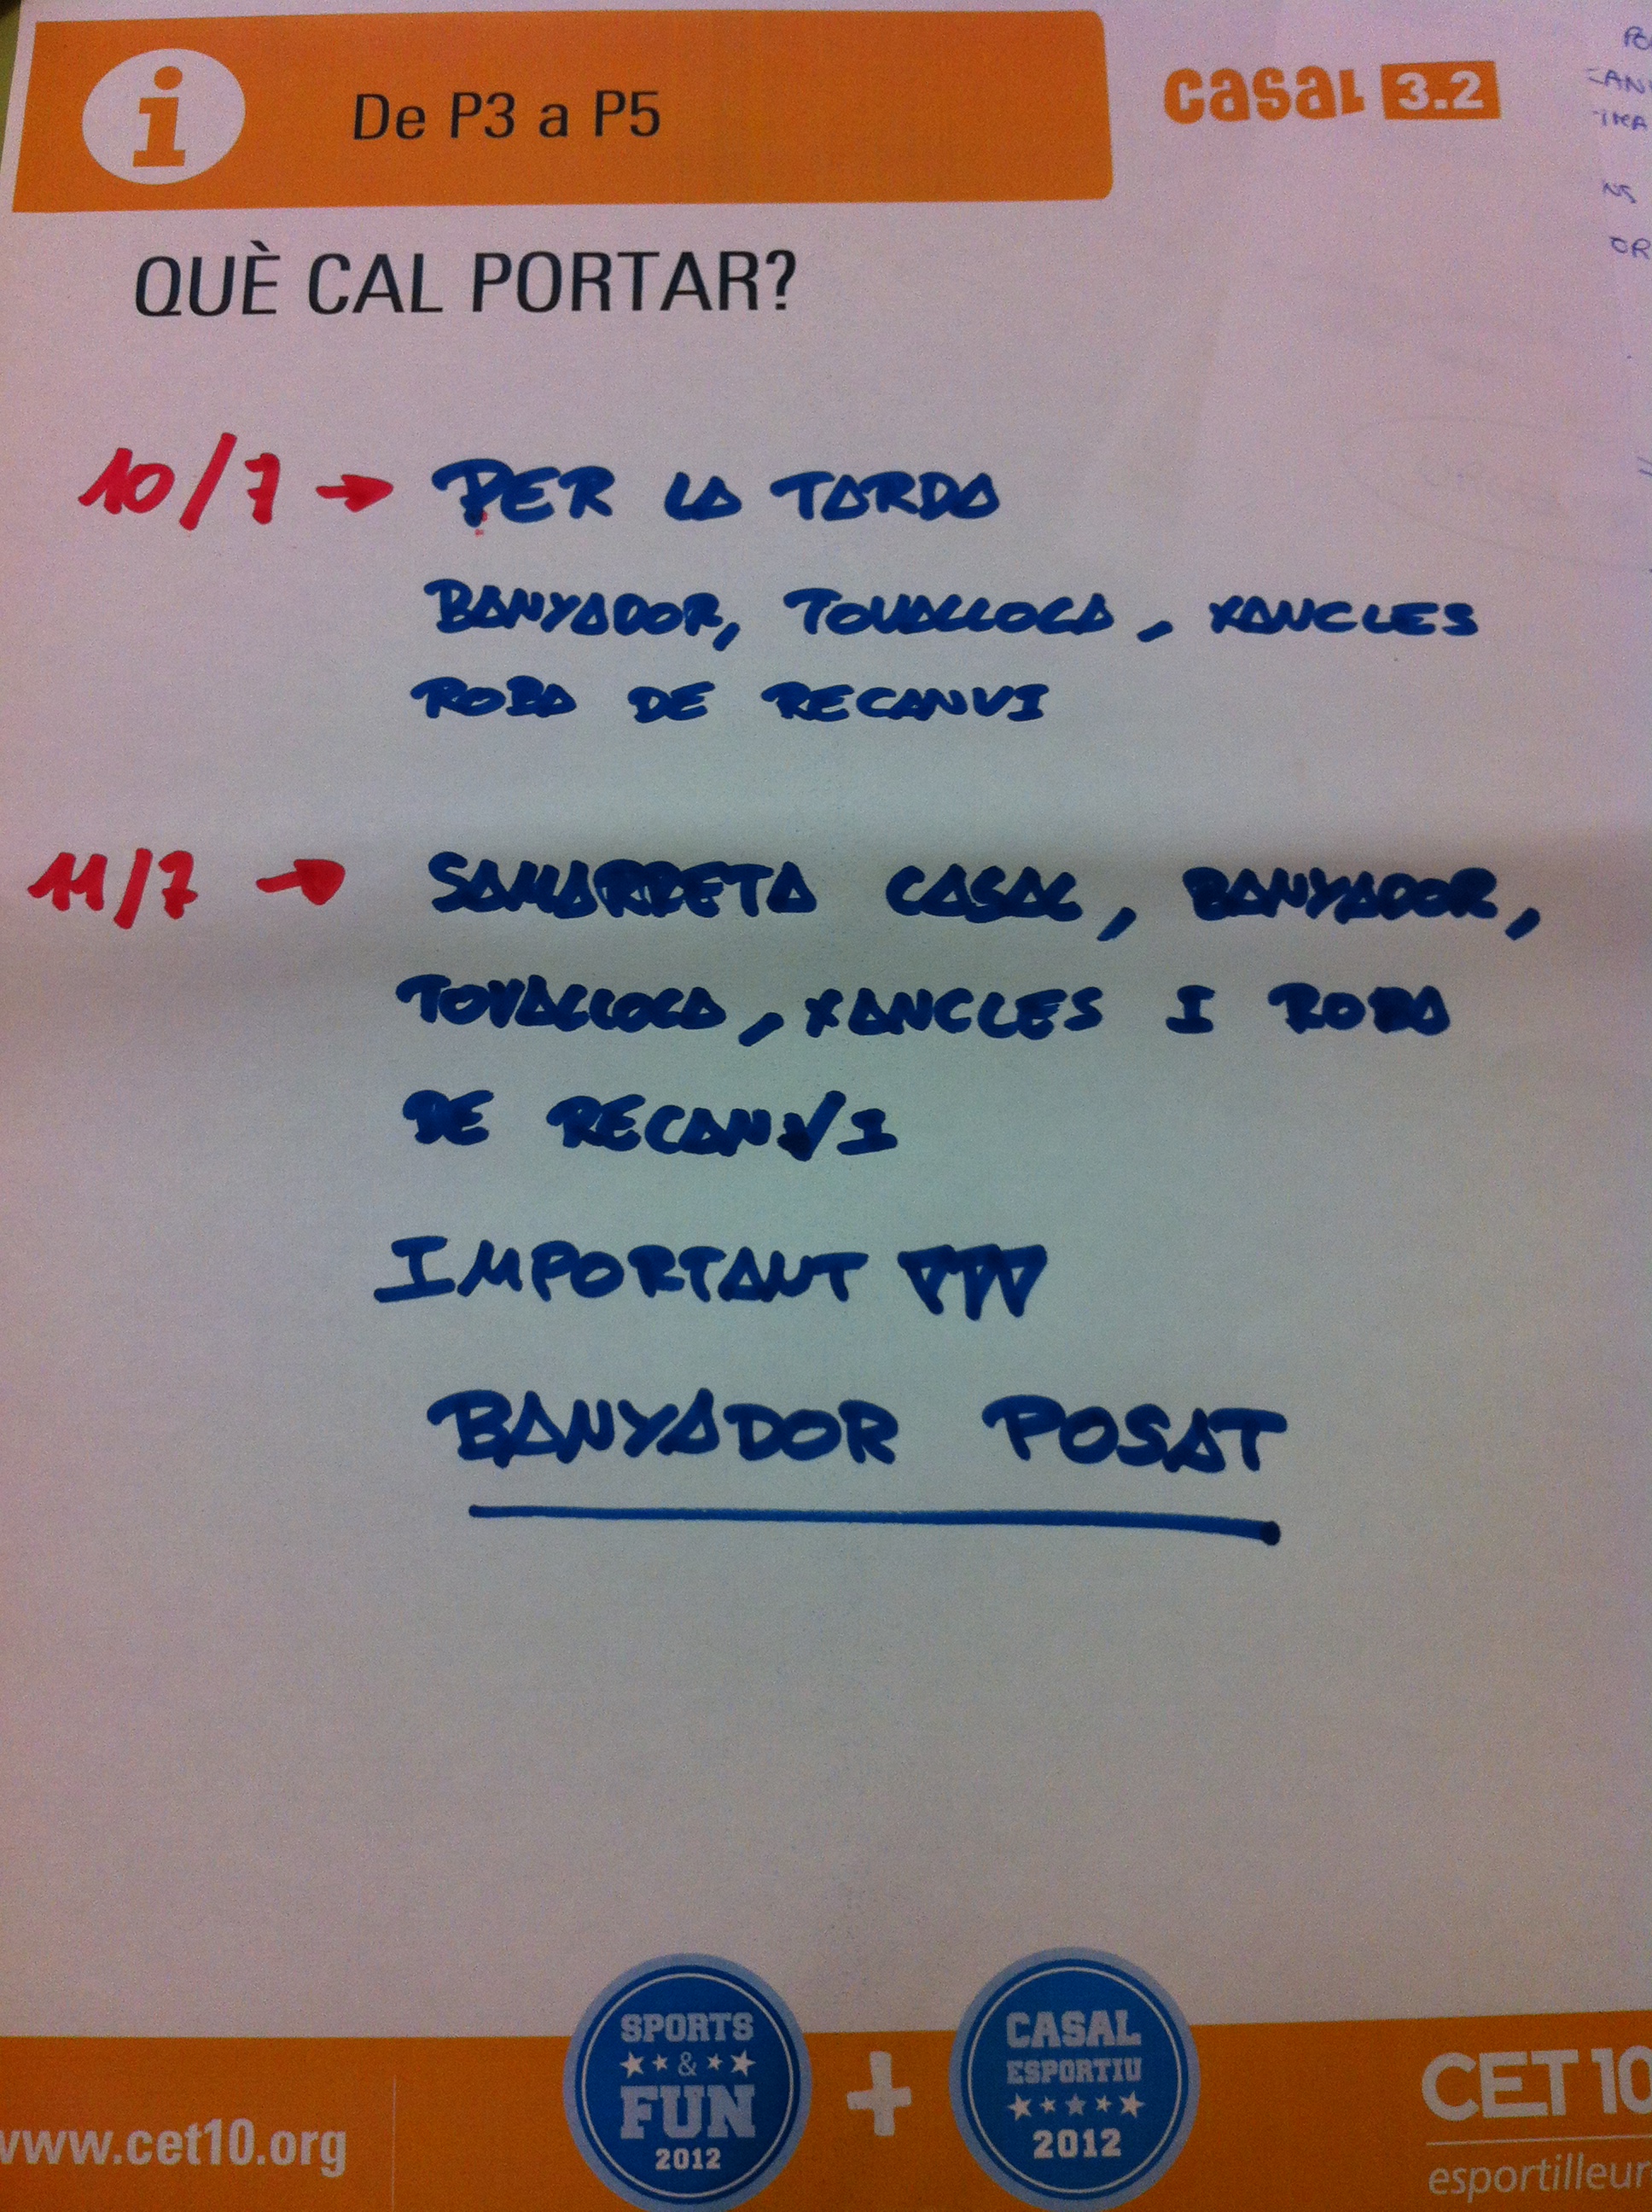 i De P3 a P5
casal 3.2
QUÈ CAL PORTAR?
10/7 → PER LA TARDA
BANYADOR, TOVALLOLA, XANCLES
ROBA DE RECANVI
11/7 → SAMARRETA CASAL, BANYADOR,
TOVALLOLA, XANCLES I ROBA
DE RECANVI
IMPORTANT !!!
BANYADOR POSAT
SPORTS
&
FUN
2012
+
CASAL
ESPORTIU
2012
www.cet10.org
CET10
esportilleur